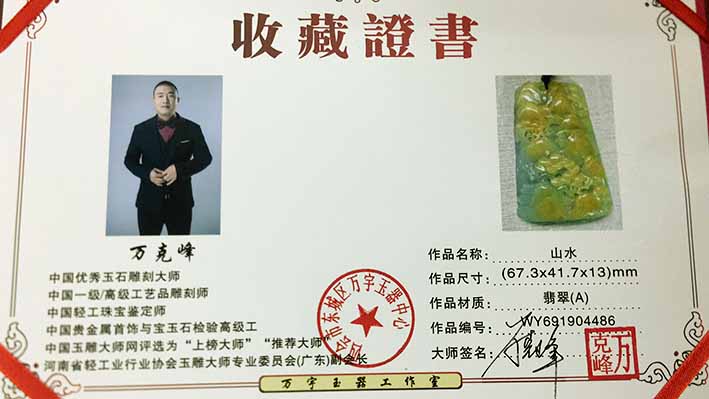 收藏證書
万克峰
中国优秀玉石雕刻大师
中国一级/高级工艺品雕刻师
中国轻工珠宝鉴定师
中国贵金属首饰与宝玉石检验高级工
中国玉雕大师网评选为“上榜大师”“推荐大师”
河南省轻工业行业协会玉雕大师专业委员会(广东)副会长
四会市东城区万宇玉器中心
作品名称: 山水
作品尺寸: (67.3x41.7x13)mm
作品材质: 翡翠(A)
作品编号: WY691904486
大师签名:
万克峰
万宇玉器工作室